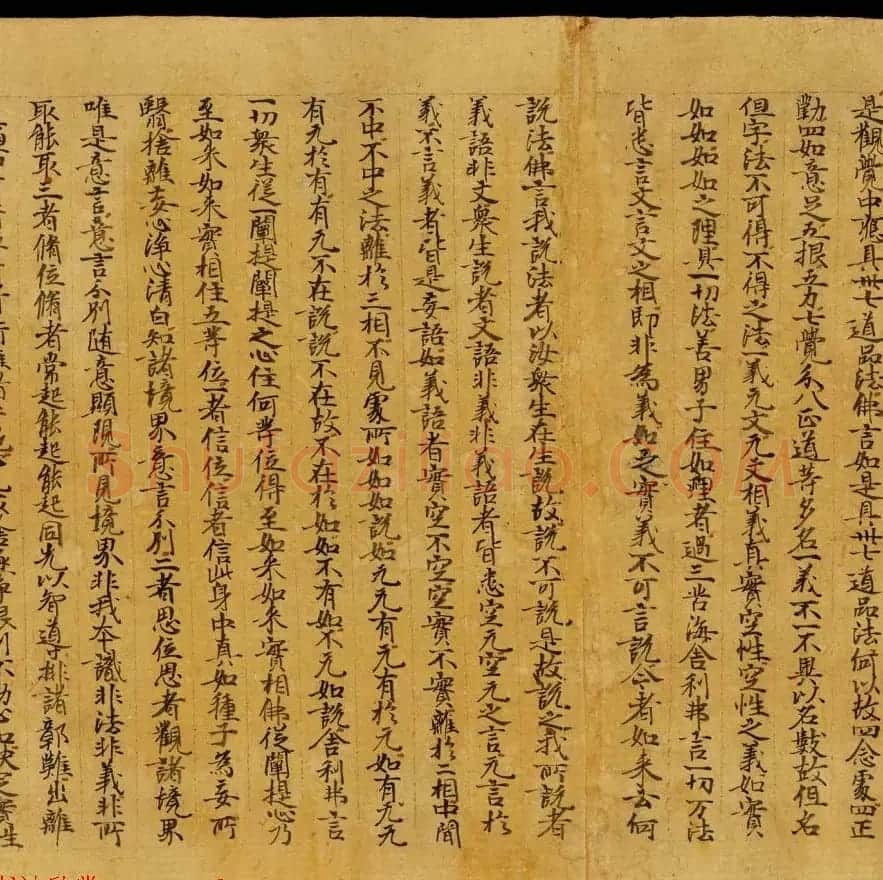 是觀覺中應具卅七道品法佛言如是具卅七道品法何以故四念處四正
勤四如意足五根五力七覺分八正道等多名一義不一不異以名數故但名
但字法不可得不得之法一義无文无文相義真實空性空性之義如實
如如如如之理具一切法善男子住如理者過三苦海舍利弗言一切万法
皆悉言文言文之相即非為義如之實義不可言說今者如来云何
說法佛言我說法者以汝衆生在生說故說不可說是故說之我所說者
義語非文衆生說者文語非義非義語者皆悉空无空无之言无言於
義不言義者皆是妄語如義語者實空不空空實不實離於二相中間
不中不中之法離於三相不見處所如如如說如无无有无有於无如有无无
有无於有有无不在說說不在故不在於如如不有如不无如說舍利弗言
一切衆生從一闡提闡提之心住何等位得至如来如来實相佛從闡提心乃
至如来如来實相住五等位一者信位信者信此身中真如種子為妄所
翳捨離妄心淨心清白知諸境界意言分別二者思位思者觀諸境界
唯是意言意言分別隨意顯現所見境界非我本識非法非義非所
取能取三者脩位脩者常起能起能起同先以智導排諸鄣難出離
Shufaziliao.com